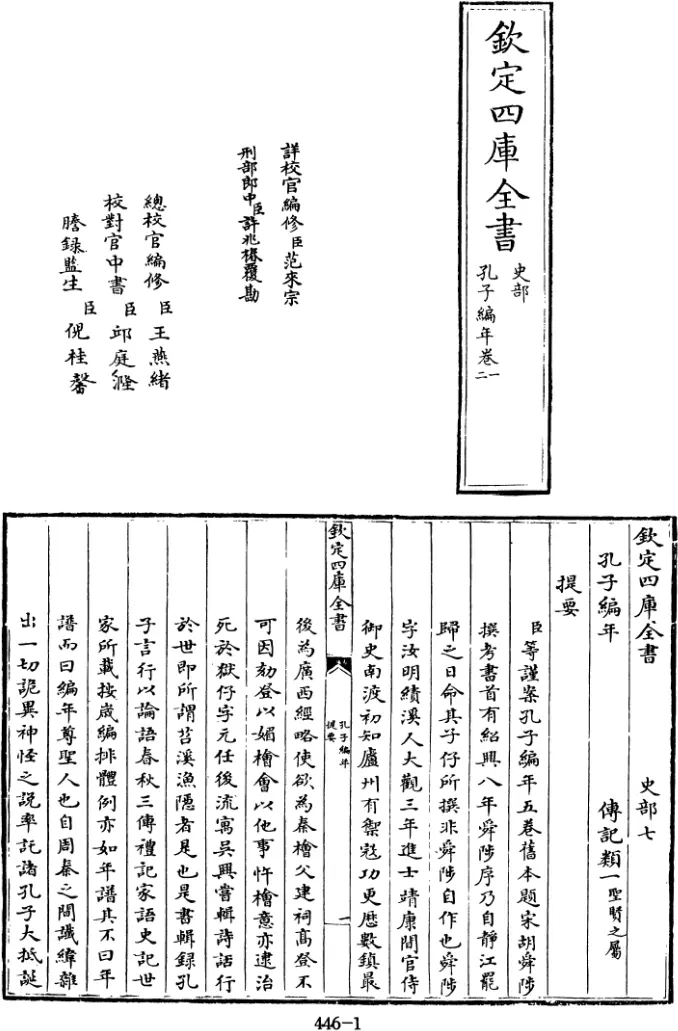 欽定四庫全書
史部
孔子編年卷一
二
詳校官編修臣范來宗
刑部郎中臣許兆椿覆勘
總校官編修臣王燕緒
校對官中書臣邱庭漋
謄錄監生臣倪桂馨
欽定四庫全書 史部七
孔子編年 傳記類一聖賢之屬
提要
臣等謹案孔子編年五卷舊本題宋胡舜陟
撰考書首有紹興八年舜陟序乃自靜江罷
歸之日命其子仔所撰非舜陟自作也舜陟
字汝明績溪人大觀三年進士靖康間官侍
御史南渡初知廬州有禦寇功更歷數鎮最
欽定四庫全書
孔子編年
提要
一
後為廣西經略使欲為秦檜父建祠高登不
可因劾登以媚檜會以他事忤檜意亦逮治
死於獄仔字元任後流寓吳興嘗輯詩話行
於世即所謂苕溪漁隱者是也是書輯録孔
子言行以論語春秋三傳禮記家語史記世
家所載按歲編排體例亦如年譜其不曰年
譜而曰編年尊聖人也自周秦之間讖緯雜
出一切詭異神怪之説率託諸孔子大抵誕
446-1